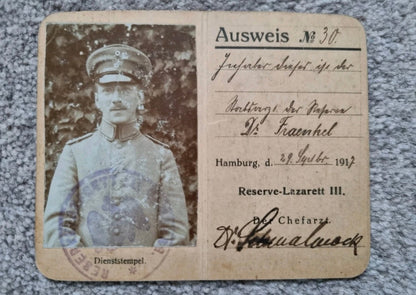 Ausweis № 30.
Inhaber dieses ist der
Stabsarzt der Reserve
Dr. Fraenkel
Hamburg, d. 29. Septbr. 1917
Reserve-Lazarett III.
Der Chefarzt.
Dr.
Dienststempel.
RESERVE